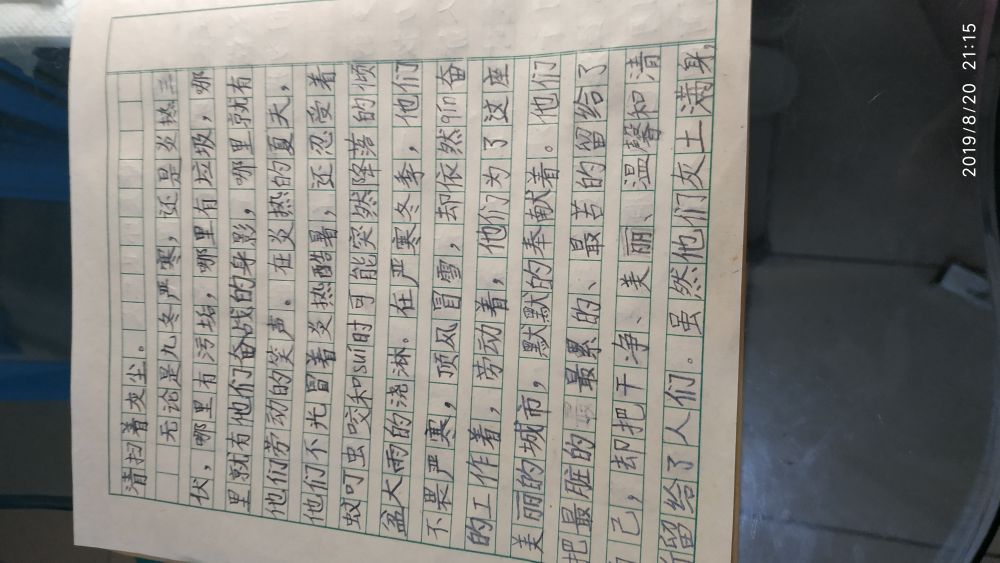 清扫着灰尘。
无论是九冬严寒，还是炎热三
伏，哪里有污垢，哪里有垃圾，哪
里就有他们奋战的身影，哪里就有
他们劳动的笑声。在炎热的夏天，
他们不光冒着炎热酷暑，还忍受着
蚊叮虫咬和sui时可能突然降落的倾
盆大雨的浇淋。在严寒冬季，他们
不畏严寒，顶风冒雪，却依然qin奋
的工作着，劳动着，他们为了这座
美丽的城市，默默的奉献着。他们
把最脏的、最累的、最苦的留给了
自己，却把干净、美丽、温馨和清
留给了人们。虽然他们灰土满身，
2019/8/20 21:15